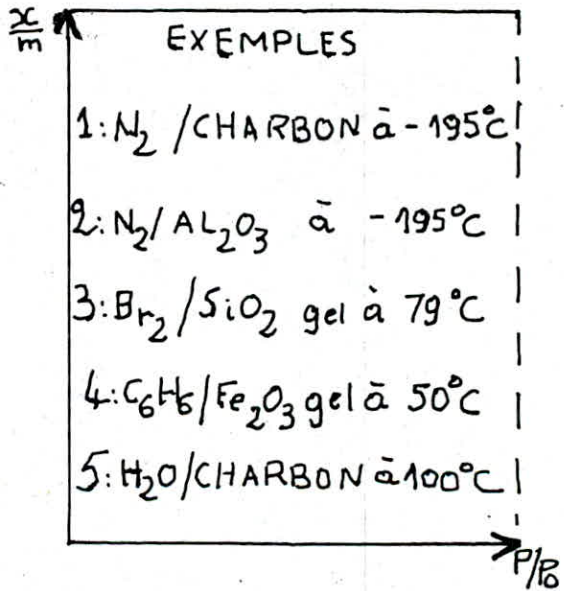 x/m
EXEMPLES
1: N₂ /CHARBON à -195°C
2: N₂/AL₂O₃ à -195°C
3: Br₂/SiO₂ gel à 79°C
4: C₆H₆/Fe₂O₃ gel à 50°C
5: H₂O/CHARBON à 100°C
P/P₀